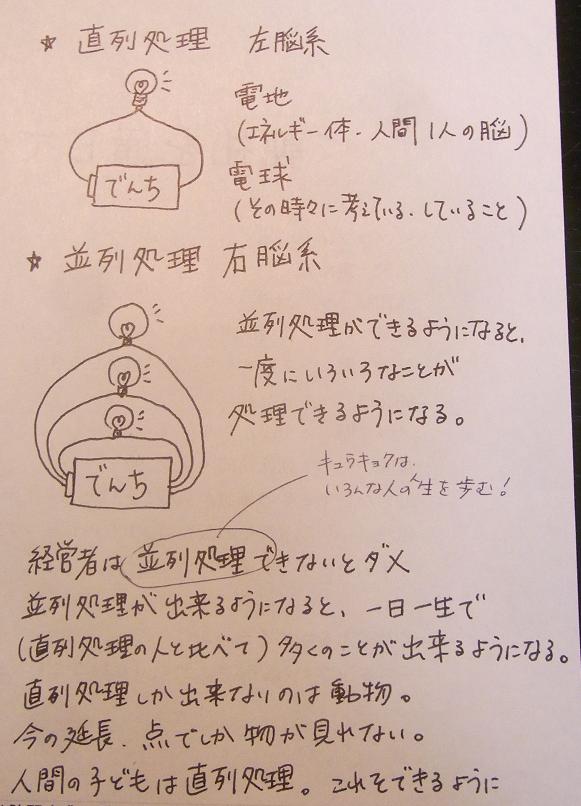 ☆ 直列処理 左脳系
電地
(エネルギー体・人間1人の脳)
でんち
電球
(その時々に考えている、していること)
☆ 並列処理 右脳系
並列処理ができるようになると、
一度にいろいろなことが
処理できるようになる。
でんち
キュウキョクは、
いろんな人の人生を歩む!
経営者は並列処理できないとダメ
並列処理が出来るようになると、一日一生で
(直列処理の人と比べて)多くのことが出来るようになる。
直列処理しか出来ないのは動物。
今の延長、点でしか物が見れない。
人間の子どもは直列処理。これをできるように